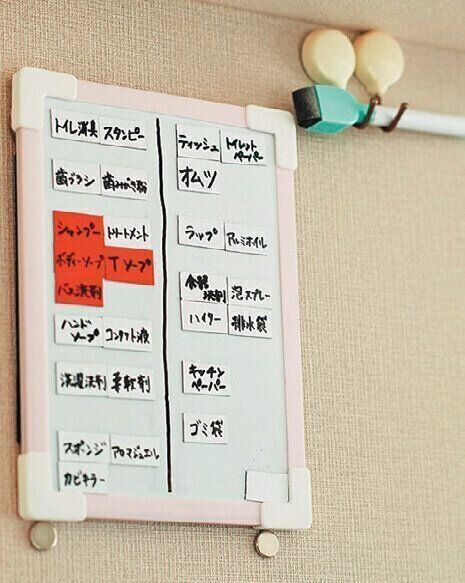 トイレ消臭 スタンピー
歯ブラシ 歯みがき粉
シャンプー トリートメント
ボディーソープ Tソープ
バス洗剤
ハンドソープ コンタクト液
洗濯洗剤 柔軟剤
スポンジ アロマジュエル
カビキラー
ティッシュ トイレットペーパー
オムツ
ラップ アルミホイル
食器洗剤 泡スプレー
ハイター 排水袋
キッチンペーパー
ゴミ袋